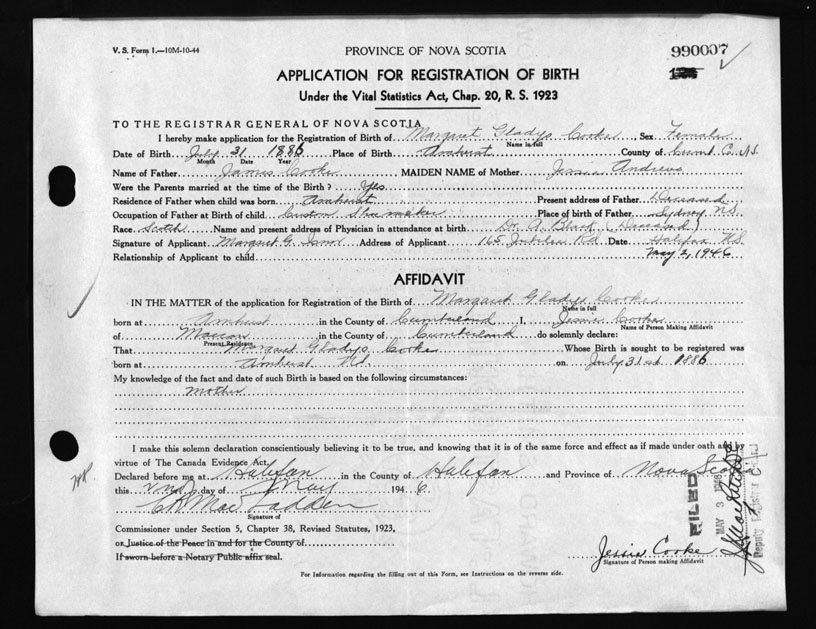 V. S. Form 1.—10M-10-44
PROVINCE OF NOVA SCOTIA
990007
APPLICATION FOR REGISTRATION OF BIRTH
Under the Vital Statistics Act, Chap. 20, R. S. 1923
TO THE REGISTRAR GENERAL OF NOVA SCOTIA
I hereby make application for the Registration of Birth of Margaret Gladys Cooke, Sex Female
Name in full
Date of Birth July 31 1886 Place of Birth Amherst County of Cumb. Co. N.S.
Month Date Year
Name of Father James Cooke MAIDEN NAME of Mother Jessie Andrews
Were the Parents married at the time of the Birth? Yes
Residence of Father when child was born Amherst Present address of Father Deceased
Occupation of Father at Birth of child Custom Shoemaker Place of birth of Father Sydney N.S.
Race Scotch Name and present address of Physician in attendance at birth Dr. A. Black (Deceased)
Signature of Applicant Margaret G. Address of Applicant 165 Jubilee Rd Date Halifax N.S.
Relationship of Applicant to child May 2, 1946
AFFIDAVIT
IN THE MATTER of the application for Registration of the Birth of Margaret Gladys Cooke
Name in full
born at Amherst in the County of Cumberland I, Jessie Cooke
Name of Person Making Affidavit
of Maccan in the County of Cumberland do solemnly declare:
Present Residence
That Margaret Gladys Cooke Whose Birth is sought to be registered was
born at Amherst N.S. on July 31st 1886
My knowledge of the fact and date of such Birth is based on the following circumstances:
Mother
I make this solemn declaration conscientiously believing it to be true, and knowing that it is of the same force and effect as if made under oath and by
virtue of The Canada Evidence Act.
Declared before me at Halifax in the County of Halifax and Province of Nova Scotia
this 2nd day of May 1946
MacFadden
Signature of
Commissioner under Section 5, Chapter 38, Revised Statutes, 1923,
or Justice of the Peace in and for the County of
If sworn before a Notary Public affix seal.
Jessie Cooke
Signature of Person making Affidavit
FILED
MAY 3 1946
Deputy Registrar General
For Information regarding the filling out of this Form, see Instructions on the reverse side.